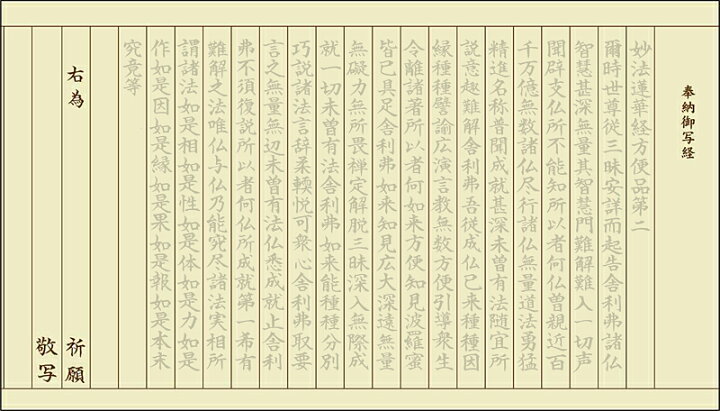 奉納御写経
妙法蓮華経方便品第二
爾時世尊従三昧安詳而起告舎利弗諸仏
智慧甚深無量其智慧門難解難入一切声
聞辟支仏所不能知所以者何仏曾親近百
千万億無数諸仏尽行諸仏無量道法勇猛
精進名称普聞成就甚深未曾有法随宜所
説意趣難解舎利弗吾従成仏已来種種因
縁種種譬諭広演言教無数方便引導衆生
令離諸著所以者何如来方便知見波羅蜜
皆已具足舎利弗如来知見広大深遠無量
無礙力無所畏禅定解脱三昧深入無際成
就一切未曾有法舎利弗如来能種種分別
巧説諸法言辞柔輭悦可衆心舎利弗取要
言之無量無辺未曾有法仏悉成就止舎利
弗不須復説所以者何仏所成就第一希有
難解之法唯仏与仏乃能究尽諸法実相所
謂諸法如是相如是性如是体如是力如是
作如是因如是縁如是果如是報如是本末
究竟等
右為 祈願
敬写